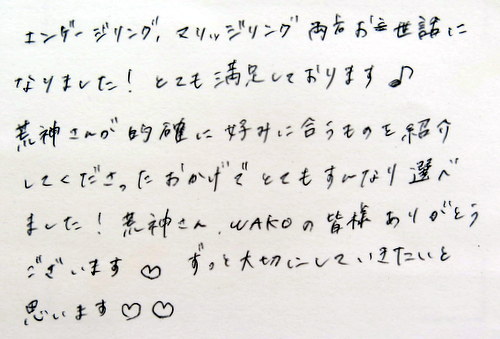 エンゲージリング、マリッジリング 両方お世話に
なりました！ とても満足しております♪
荒神さんが的確に好みに合うものを紹介
してくださったおかげで とてもすんなり選べ
ました！ 荒神さん、WAKOの皆様ありがとう
ございます♡ ずっと大切にしていきたいと
思います♡♡